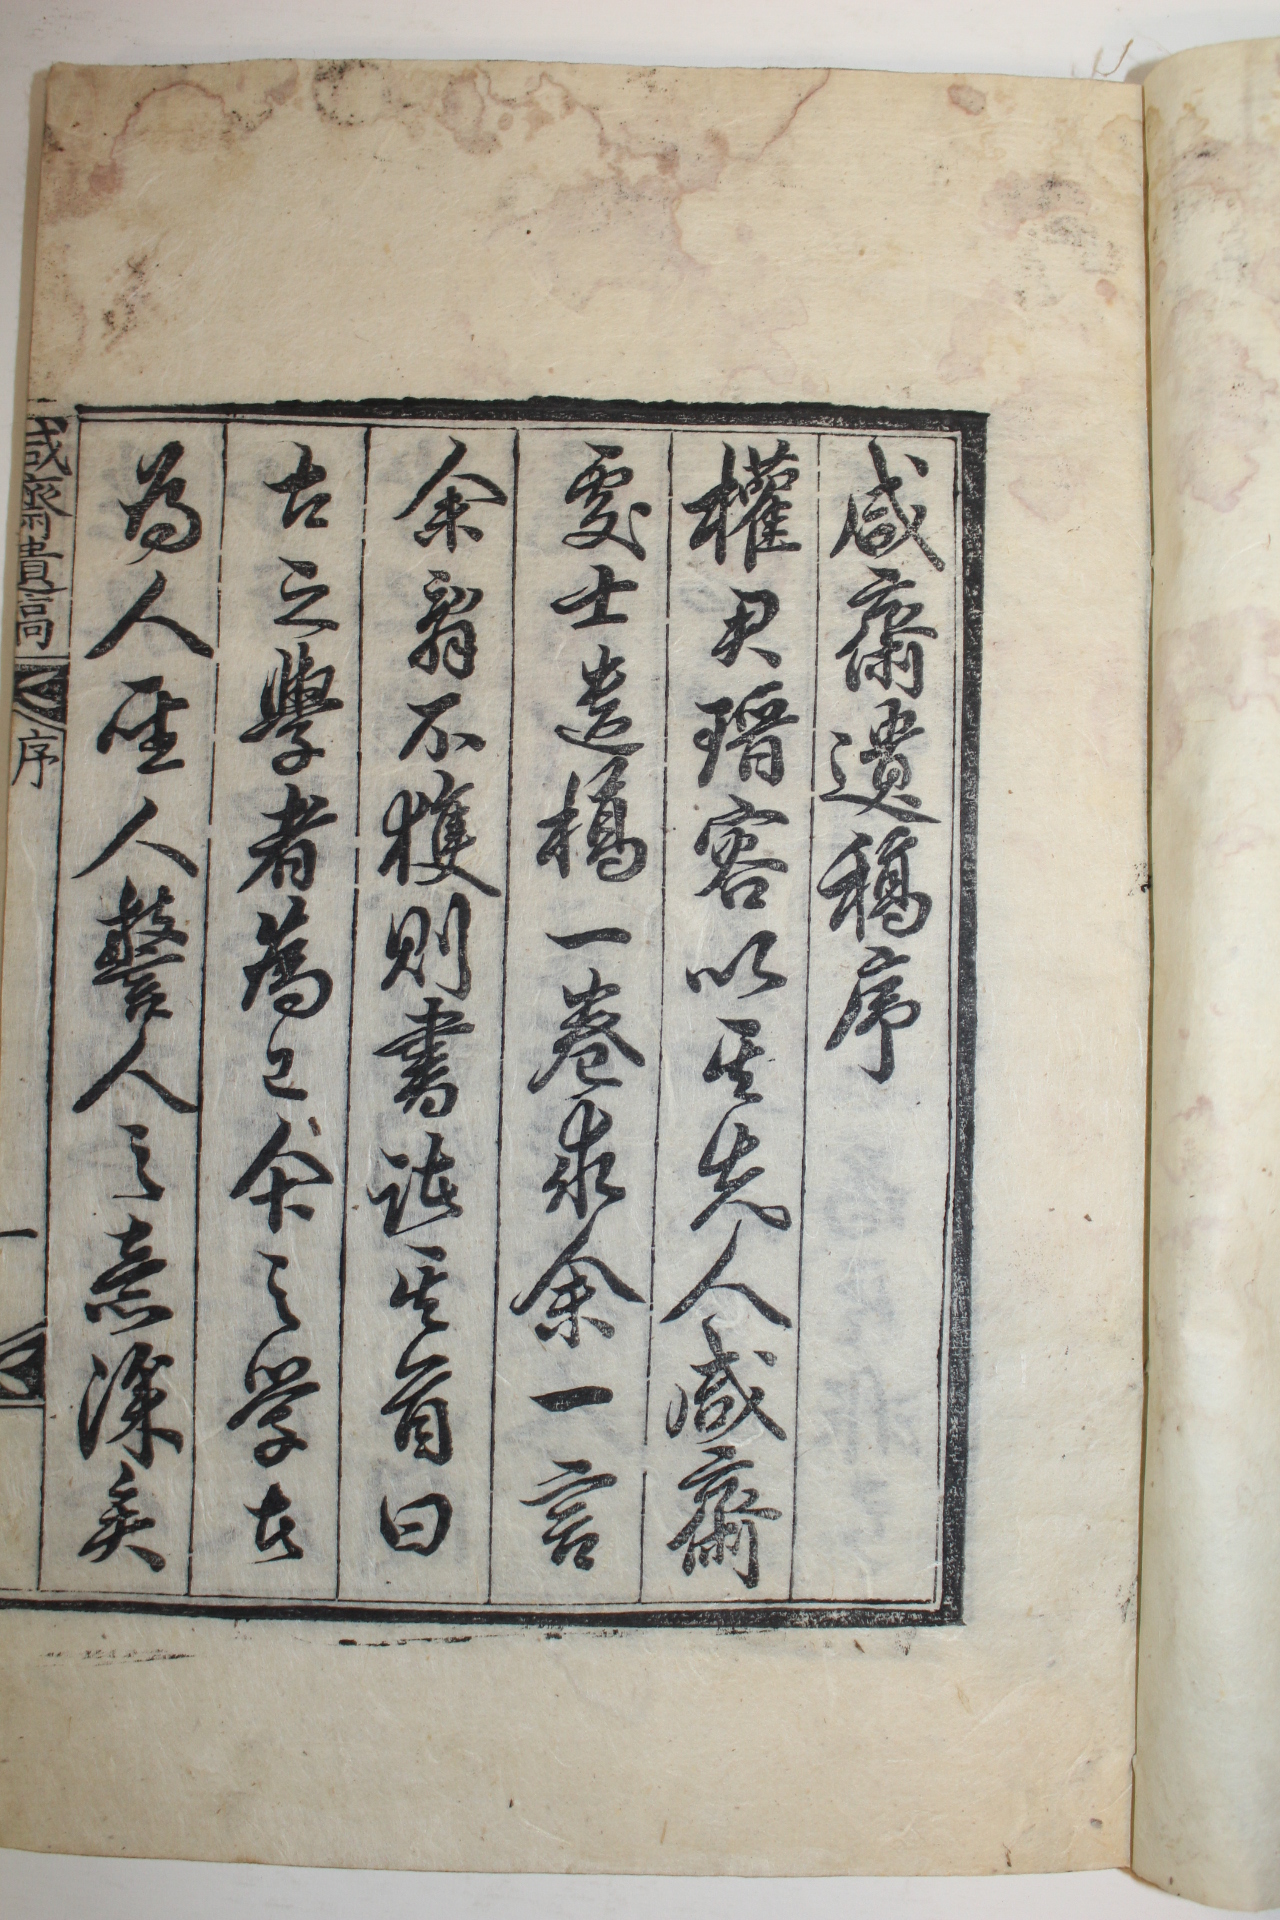 咸齋遺稿序
權君瑨容以其先人咸齋
處士遺槁一卷求余一言
余辭不獲則書諸其首曰
古之學者為己今之學者
為人聖人警人之意深矣
咸齋遺稿
序
一